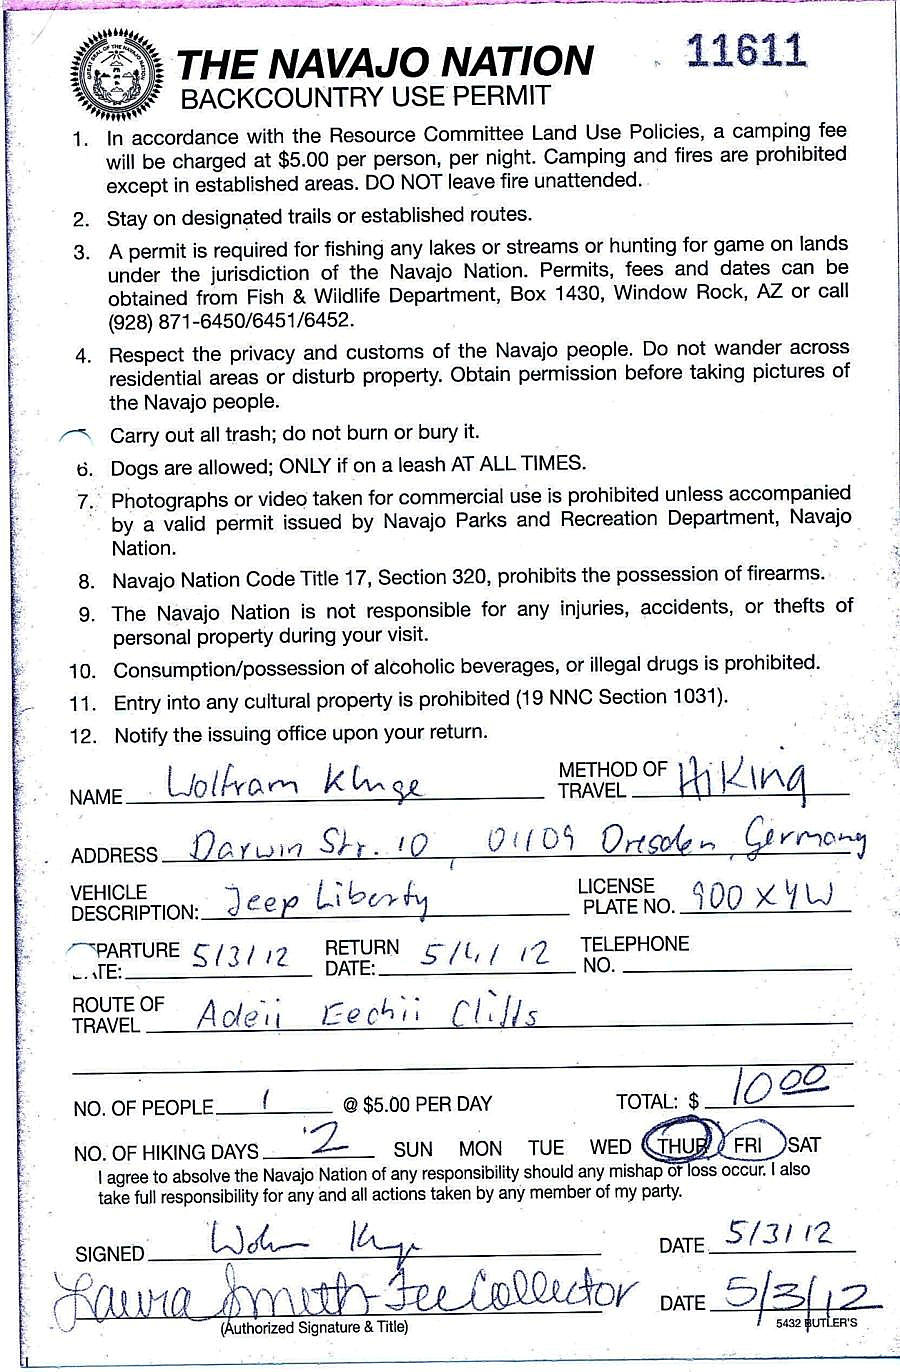 THE NAVAJO NATION
11611
BACKCOUNTRY USE PERMIT
1. In accordance with the Resource Committee Land Use Policies, a camping fee
will be charged at $5.00 per person, per night. Camping and fires are prohibited
except in established areas. DO NOT leave fire unattended.
2. Stay on designated trails or established routes.
3. A permit is required for fishing any lakes or streams or hunting for game on lands
under the jurisdiction of the Navajo Nation. Permits, fees and dates can be
obtained from Fish & Wildlife Department, Box 1430, Window Rock, AZ or call
(928) 871-6450/6451/6452.
4. Respect the privacy and customs of the Navajo people. Do not wander across
residential areas or disturb property. Obtain permission before taking pictures of
the Navajo people.
Carry out all trash; do not burn or bury it.
6. Dogs are allowed; ONLY if on a leash AT ALL TIMES.
7. Photographs or video taken for commercial use is prohibited unless accompanied
by a valid permit issued by Navajo Parks and Recreation Department, Navajo
Nation.
8. Navajo Nation Code Title 17, Section 320, prohibits the possession of firearms.
9. The Navajo Nation is not responsible for any injuries, accidents, or thefts of
personal property during your visit.
10. Consumption/possession of alcoholic beverages, or illegal drugs is prohibited.
11. Entry into any cultural property is prohibited (19 NNC Section 1031).
12. Notify the issuing office upon your return.
NAME Wolfram Kluge METHOD OF TRAVEL Hiking
ADDRESS Darwin Str. 10, 01109 Dresden, Germany
VEHICLE DESCRIPTION: Jeep Liberty LICENSE PLATE NO. 900 X YW
PARTURE TE: 5/3/12 RETURN DATE: 5/4/12 TELEPHONE NO.
ROUTE OF TRAVEL Adeii Eechii Cliffs
NO. OF PEOPLE 1 @ $5.00 PER DAY TOTAL: $ 10.00
NO. OF HIKING DAYS 2 SUN MON TUE WED THUR FRI SAT
I agree to absolve the Navajo Nation of any responsibility should any mishap or loss occur. I also
take full responsibility for any and all actions taken by any member of my party.
SIGNED Wolfram Kluge DATE 5/3/12
Laura Smith-Fee Collector DATE 5/3/12
(Authorized Signature & Title)
5432 BUTLER'S